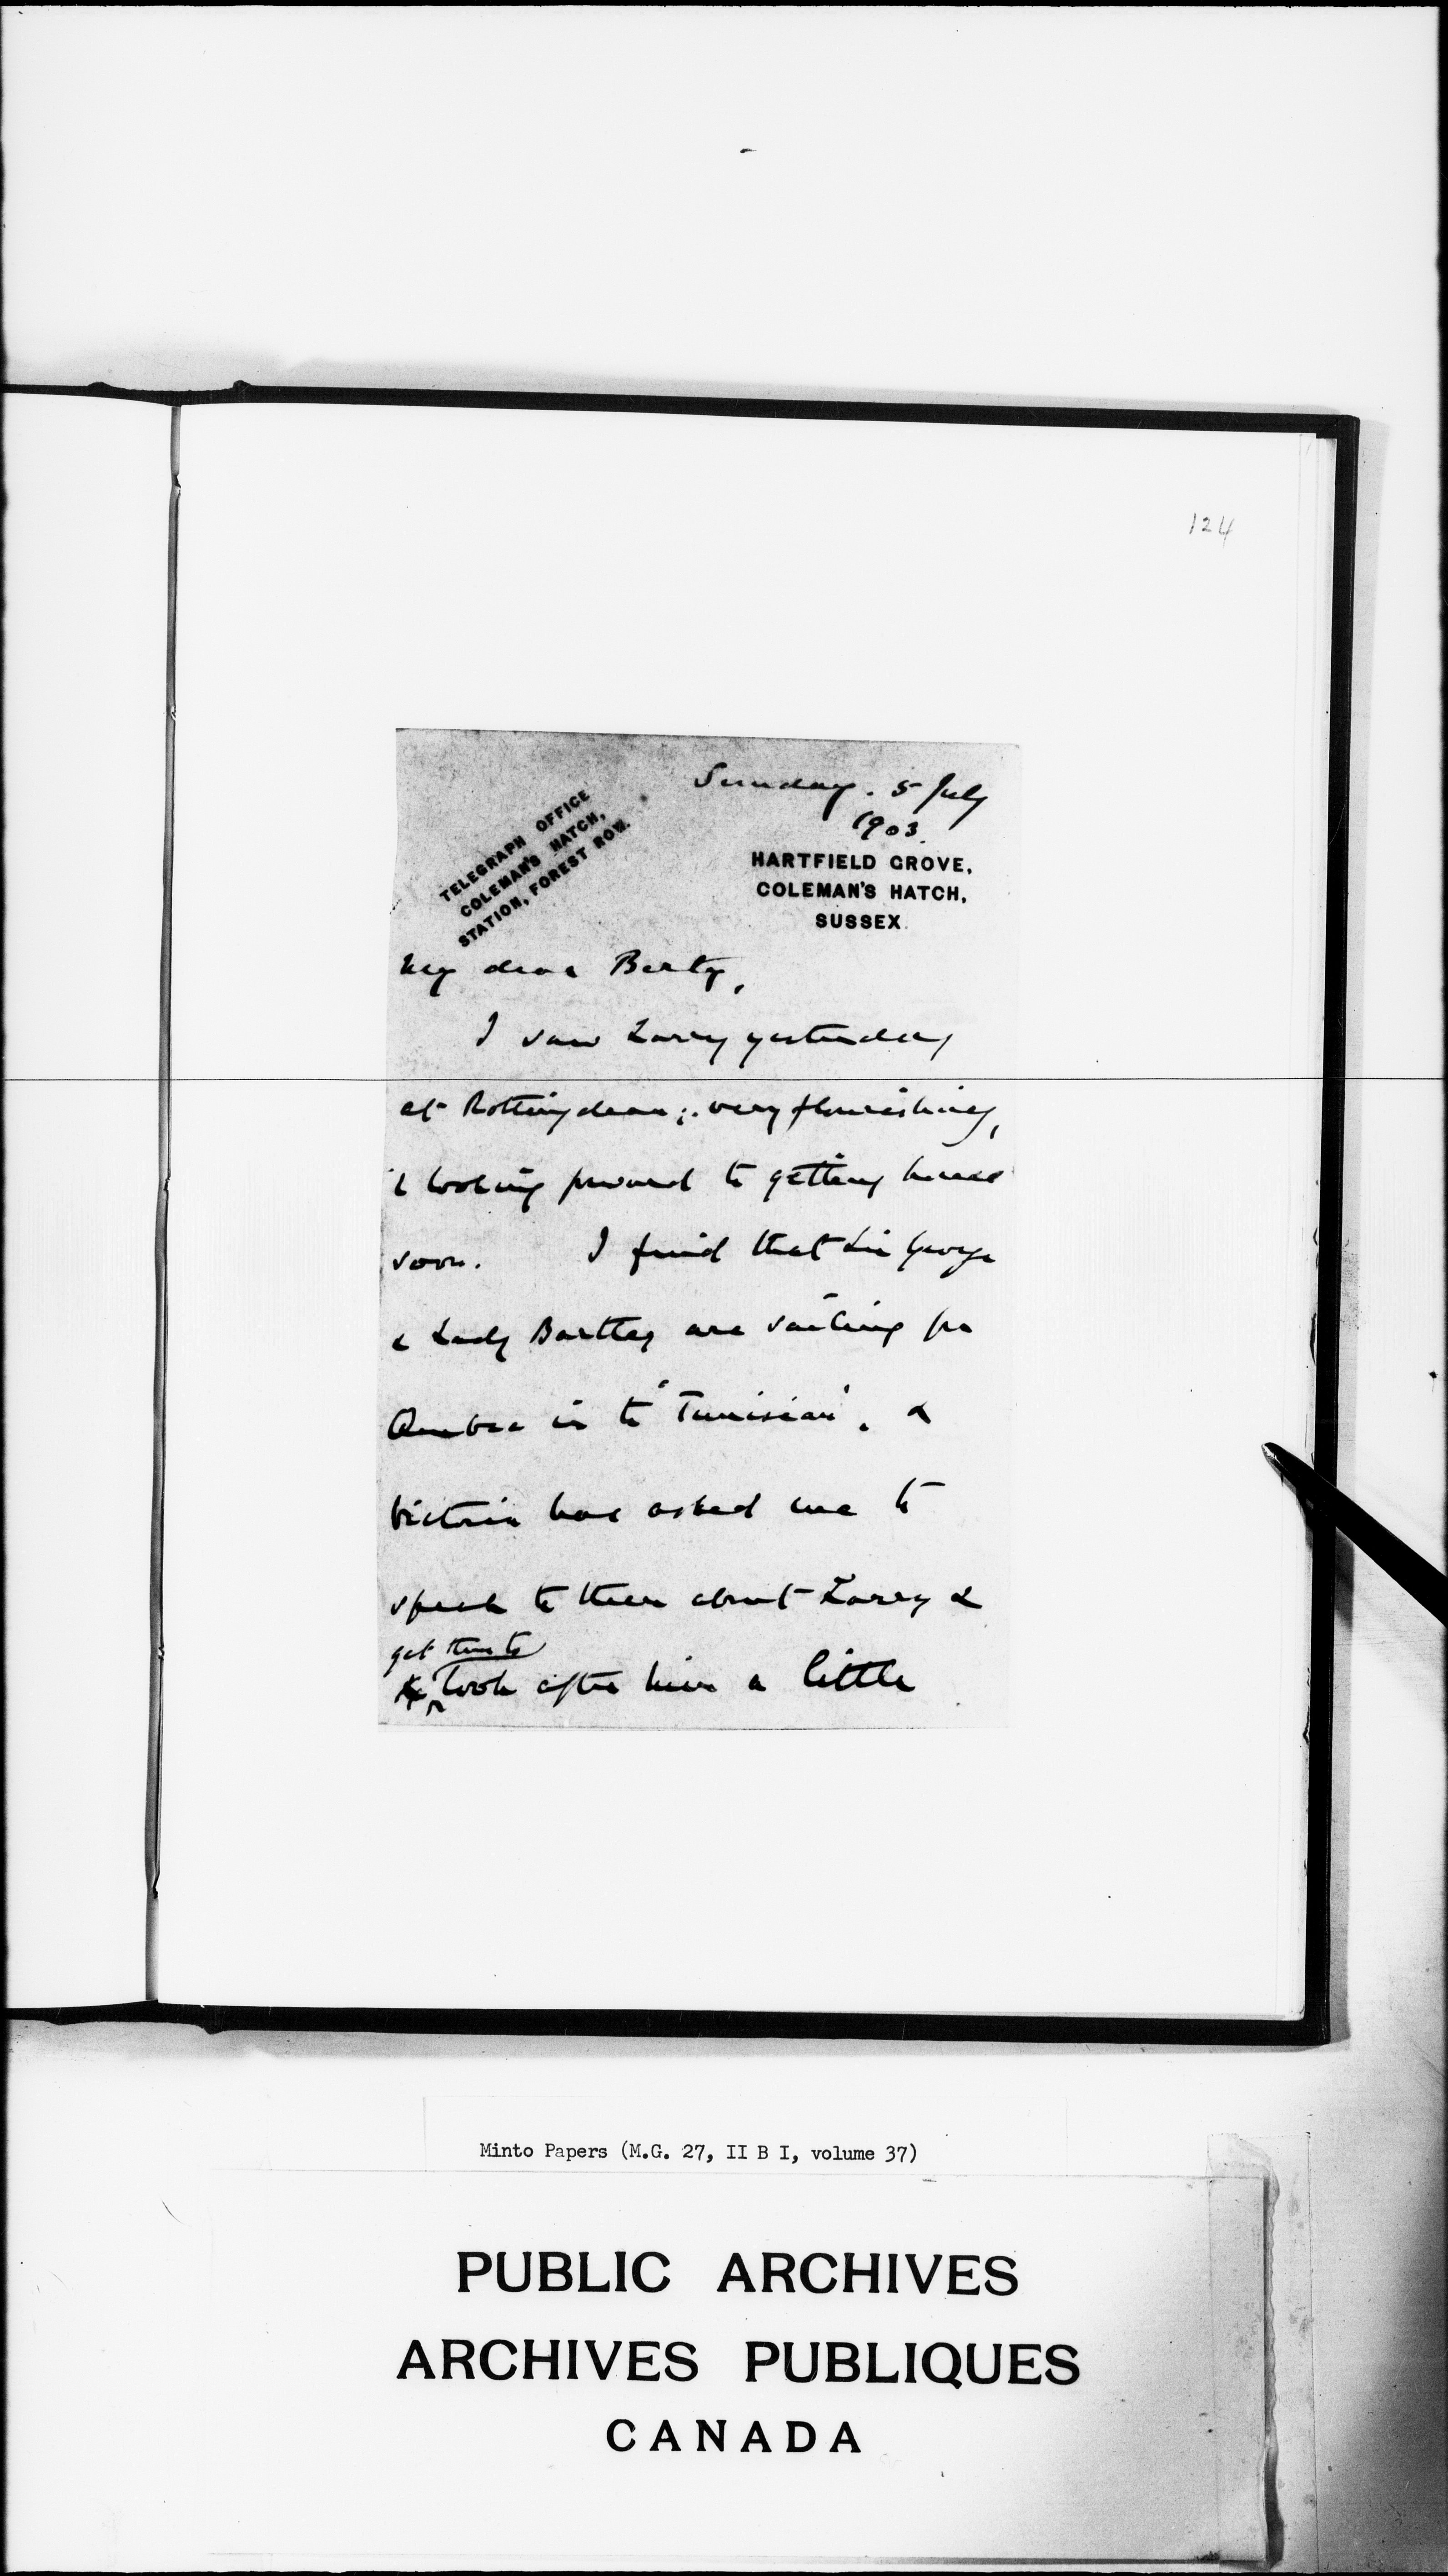 124
Sunday. 5 July
1903.
TELEGRAPH OFFICE
COLEMAN'S HATCH,
STATION, FOREST ROW.
HARTFIELD GROVE,
COLEMAN'S HATCH,
SUSSEX.
My dear Berty,
I saw Larry yesterday
at Rottingdean; very flourishing,
& looking forward to getting home
soon. I find that Sir George
& Lady Bartley are sailing for
Quebec in the "Tunisian". &
Victoria has asked me to
speak to them about Larry &
get them to
look after him a little
Minto Papers (M.G. 27, II B I, volume 37)
PUBLIC ARCHIVES
ARCHIVES PUBLIQUES
CANADA